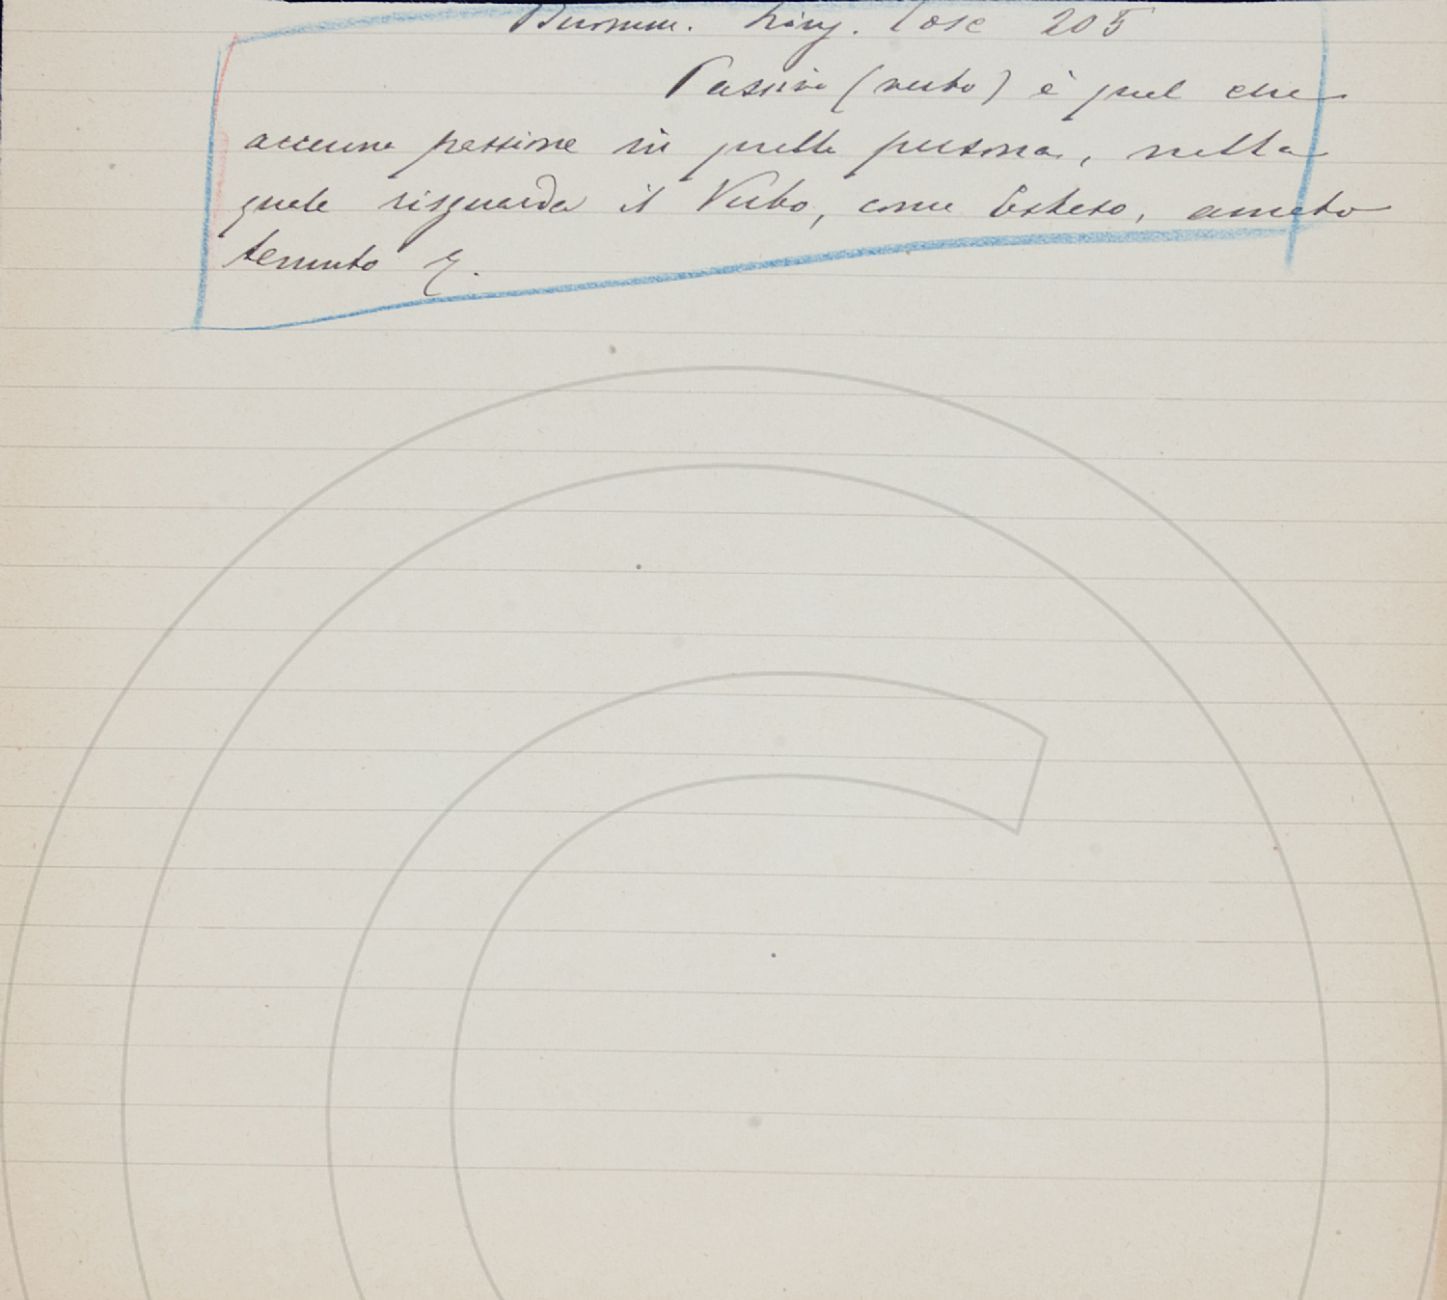 Buomm. Ling. Tosc 205
Passivo (verbo) è quel che
accenna passione in quella persona, nella
quale risguarda il Verbo, come Esteso, amato
tenuto &.